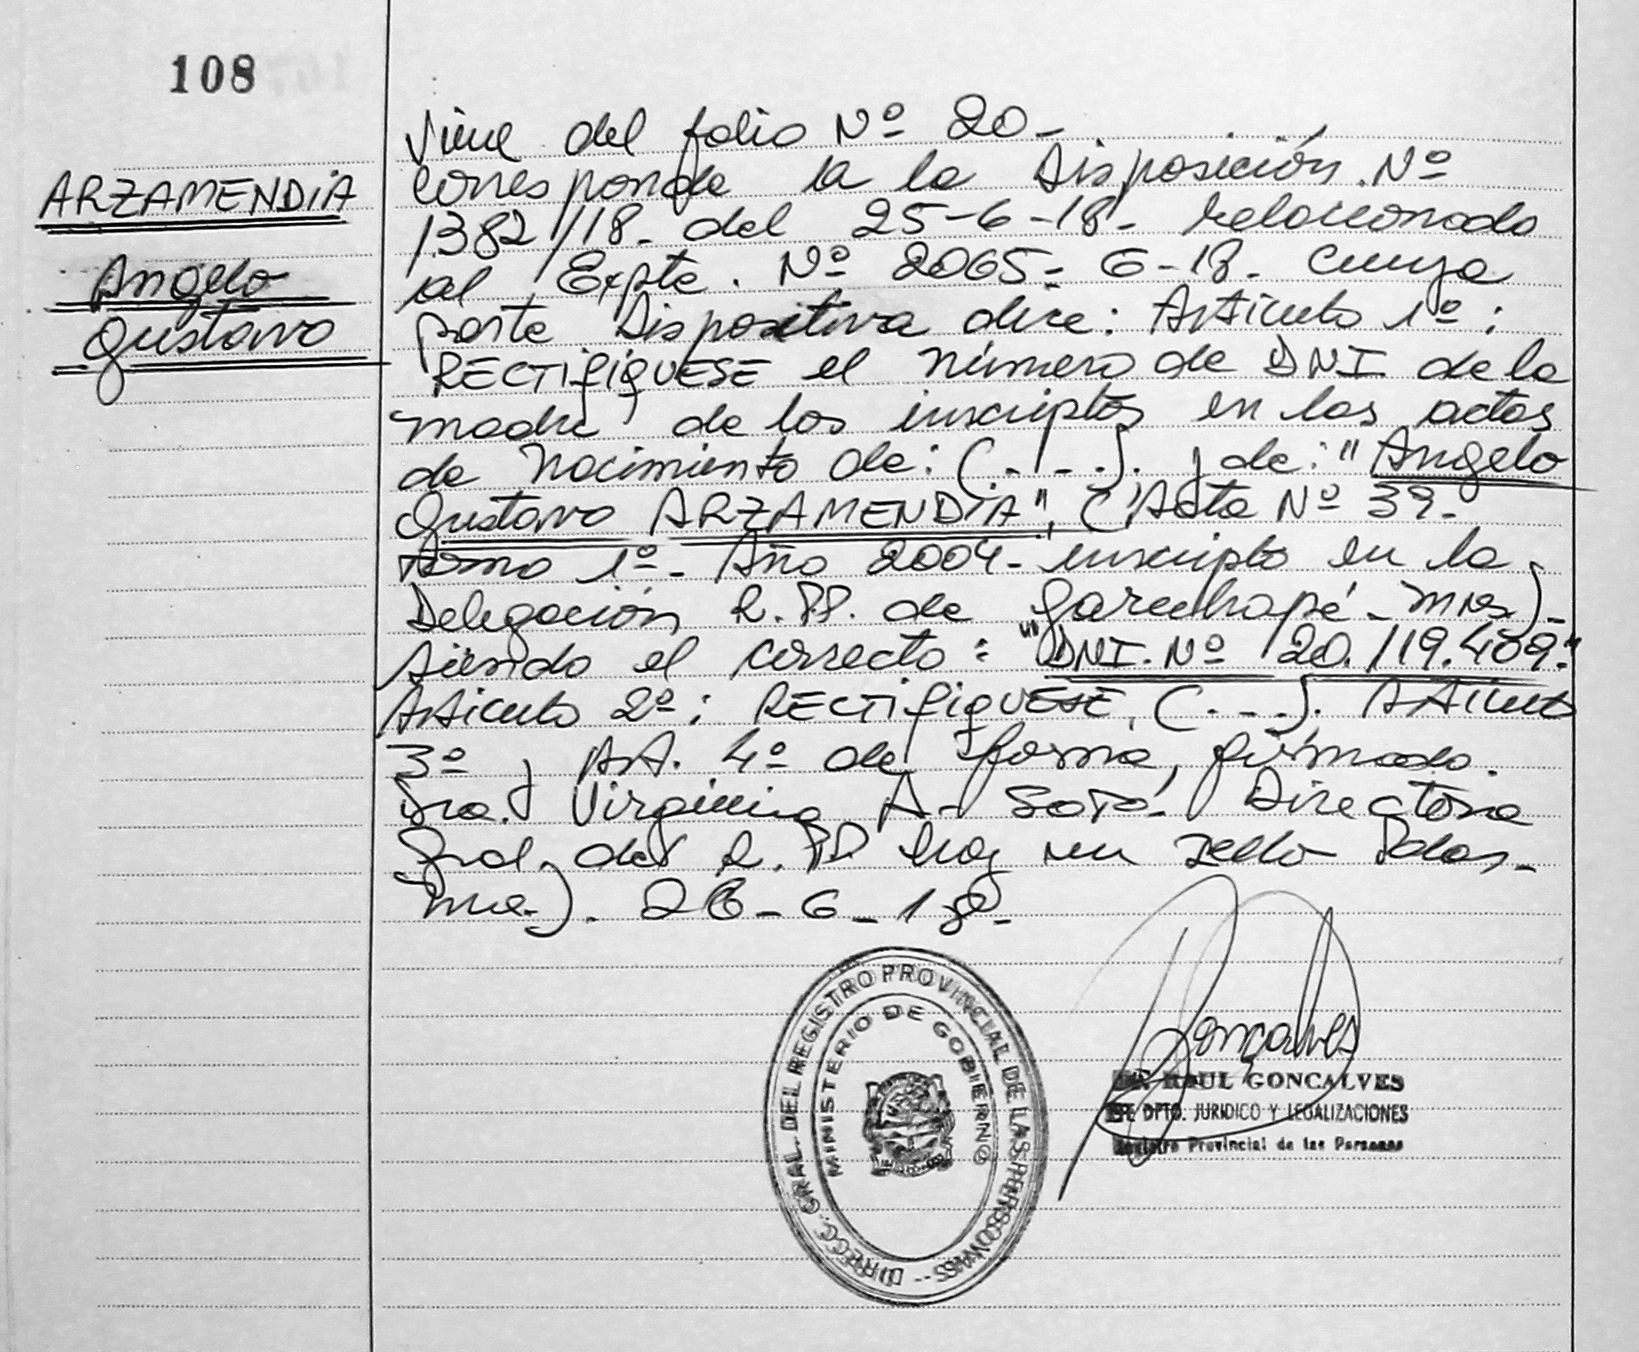 108
ARZAMENDIA
Angelo
Gustavo
Viene del folio Nº 20-
Corresponde a la Disposición Nº
1382/18- del 25-6-18- relacionado
al Expte. Nº 2065- G-18- cuya
parte Dispositiva dice: Articulo 1º:
RECTIFIQUESE el número de DNI de la
madre de los inscriptos en las actas
de nacimiento de: (---). y de: "Angelo
Gustavo ARZAMENDIA", (Acta Nº 39-
Tomo 1º- Año 2004- inscripto en la
Delegación R.PP. de Garuhapé- Mnes)-
siendo el correcto: "DNI. Nº 20.119.409."
Articulo 2º: RECTIFIQUESE, (---). Articulo
3º y Art. 4º de forma, firmado.
Dra. Virginia A- Soto- Directora
Gral. del R.PP hay un sello Pdas.
Mnes). 26-6-18-
DIRECC. GRAL. DEL REGISTRO PROVINCIAL DE LAS PERSONAS
MINISTERIO DE GOBIERNO
Goncalves
Dr. RAUL GONCALVES
DPTO. JURIDICO Y LEGALIZACIONES
Registro Provincial de las Personas